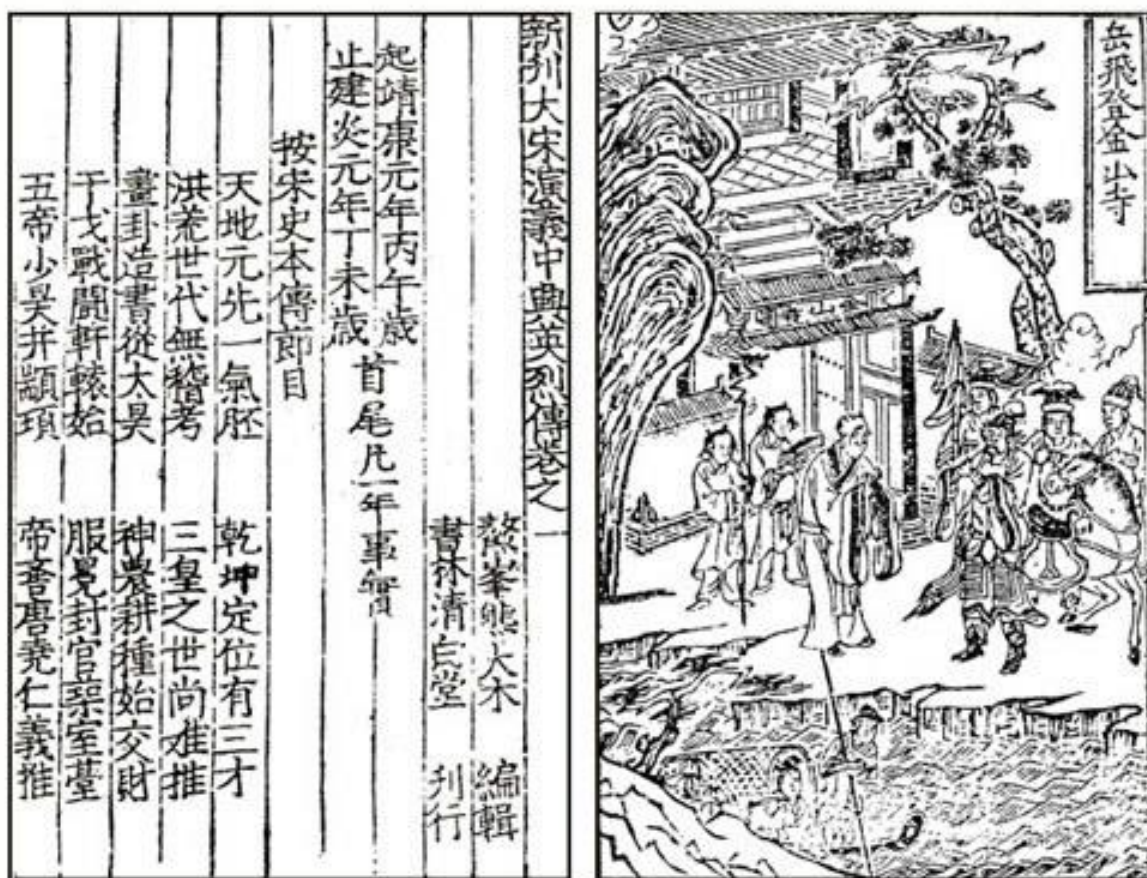 岳飛登金山寺
新刋大宋演義中興英烈傳卷之一
鰲峯熊大木 編輯
書林清白堂 刋行
起靖康元年丙午歲
止建炎元年丁未歲
首尾凡一年事實
按宋史本傳節目
天地元先一氣胚 乾坤定位有三才
洪荒世代無稽考 三皇之世尚难推
畫卦造書從太昊 神農耕種始交財
干戈戰鬪軒轅始 服冕封官築室臺
五帝少昊并顓頊 帝嚳唐堯仁義推